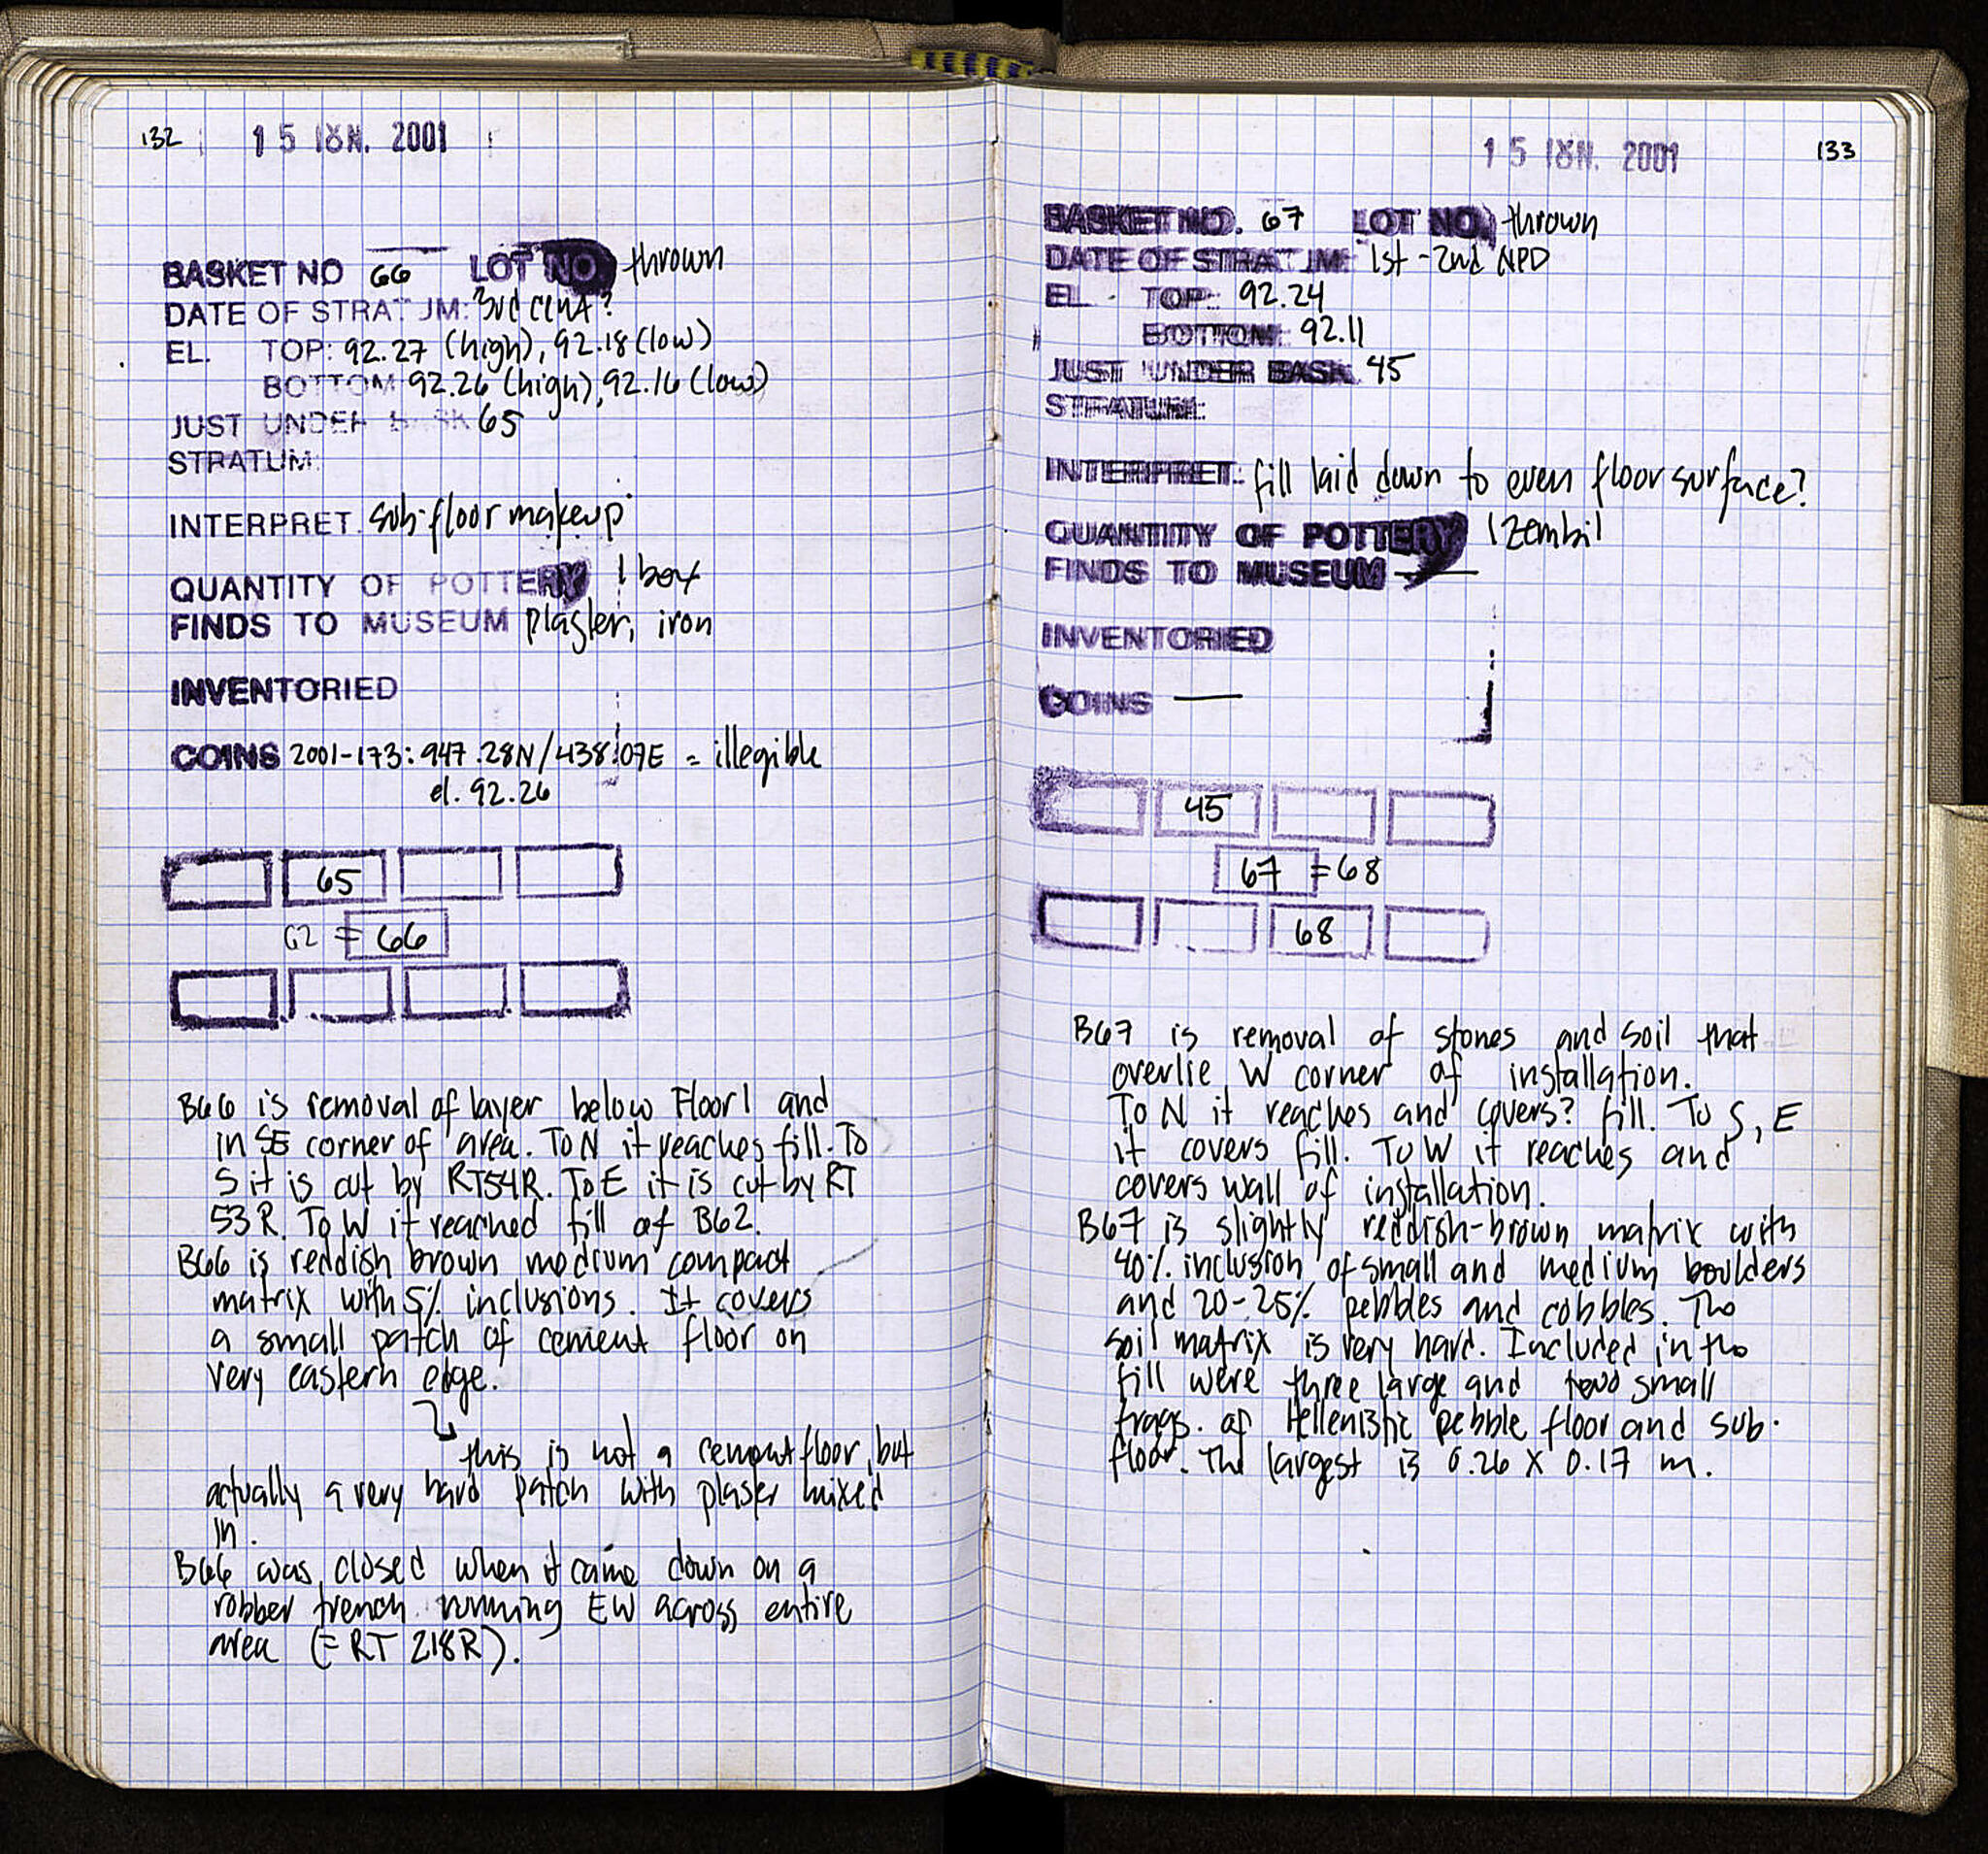 132 15 ΙΟΥΝ. 2001
BASKET NO 66 LOT NO. thrown
DATE OF STRATUM: 3rd cent?
EL. TOP: 92.27 (high), 92.18 (low)
BOTTOM 92.26 (high), 92.16 (low)
JUST UNDER BASK 65
STRATUM:
INTERPRET. sub-floor makeup
QUANTITY OF POTTERY 1 box
FINDS TO MUSEUM plaster, iron
INVENTORIED
COINS 2001-173: 947.28N/438.07E = illegible
el. 92.26
65
62 = 66
B66 is removal of layer below Floor 1 and
in SE corner of area. To N it reaches fill. To
S it is cut by RT54R. To E it is cut by RT
53R. To W it reached fill of B62.
B66 is reddish brown medium compact
matrix with 5% inclusions. It covers
a small patch of cement floor on
very eastern edge.
this is not a cement floor, but
actually a very hard patch with plaster mixed
in.
B66 was closed when it came down on a
robber trench running EW across entire
area (= RT 218R).
15 ΙΟΥΝ. 2001 133
BASKET NO. 67 LOT NO. thrown
DATE OF STRATUM: 1st-2nd APD
EL. TOP: 92.24
BOTTOM: 92.11
JUST UNDER BASK. 45
STRATUM:
INTERPRET: fill laid down to even floor surface?
QUANTITY OF POTTERY 1 zembil
FINDS TO MUSEUM —
INVENTORIED
COINS —
45
67 = 68
68
B67 is removal of stones and soil that
overlie W corner of installation.
To N it reaches and covers? fill. To S, E
it covers fill. To W it reaches and
covers wall of installation.
B67 is slightly reddish-brown matrix with
40% inclusion of small and medium boulders
and 20-25% pebbles and cobbles. The
soil matrix is very hard. Included in the
fill were three large and two small
frags. of Hellenistic pebble floor and sub-
floor. The largest is 0.26 x 0.17 m.